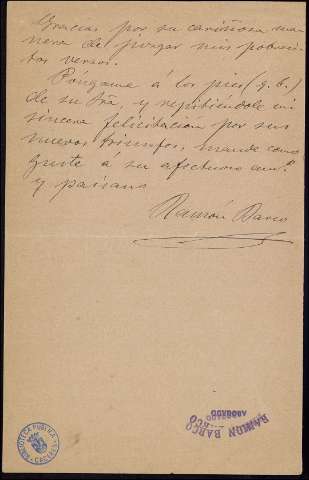 Gracias por su cariñosa ma-
nera de juzgar mis pobreci-
tos versos.
Póngame á los pies (q. b.)
de su Sra, y repitiéndole mi
sincera felicitación por sus
nuevos triunfos, mande como
guste á su afectísimo am.º
y paisano
Ramón Barco
RAMON BARCO
CORDOBA
BIBLIOTECA PUBLICA
CACERES